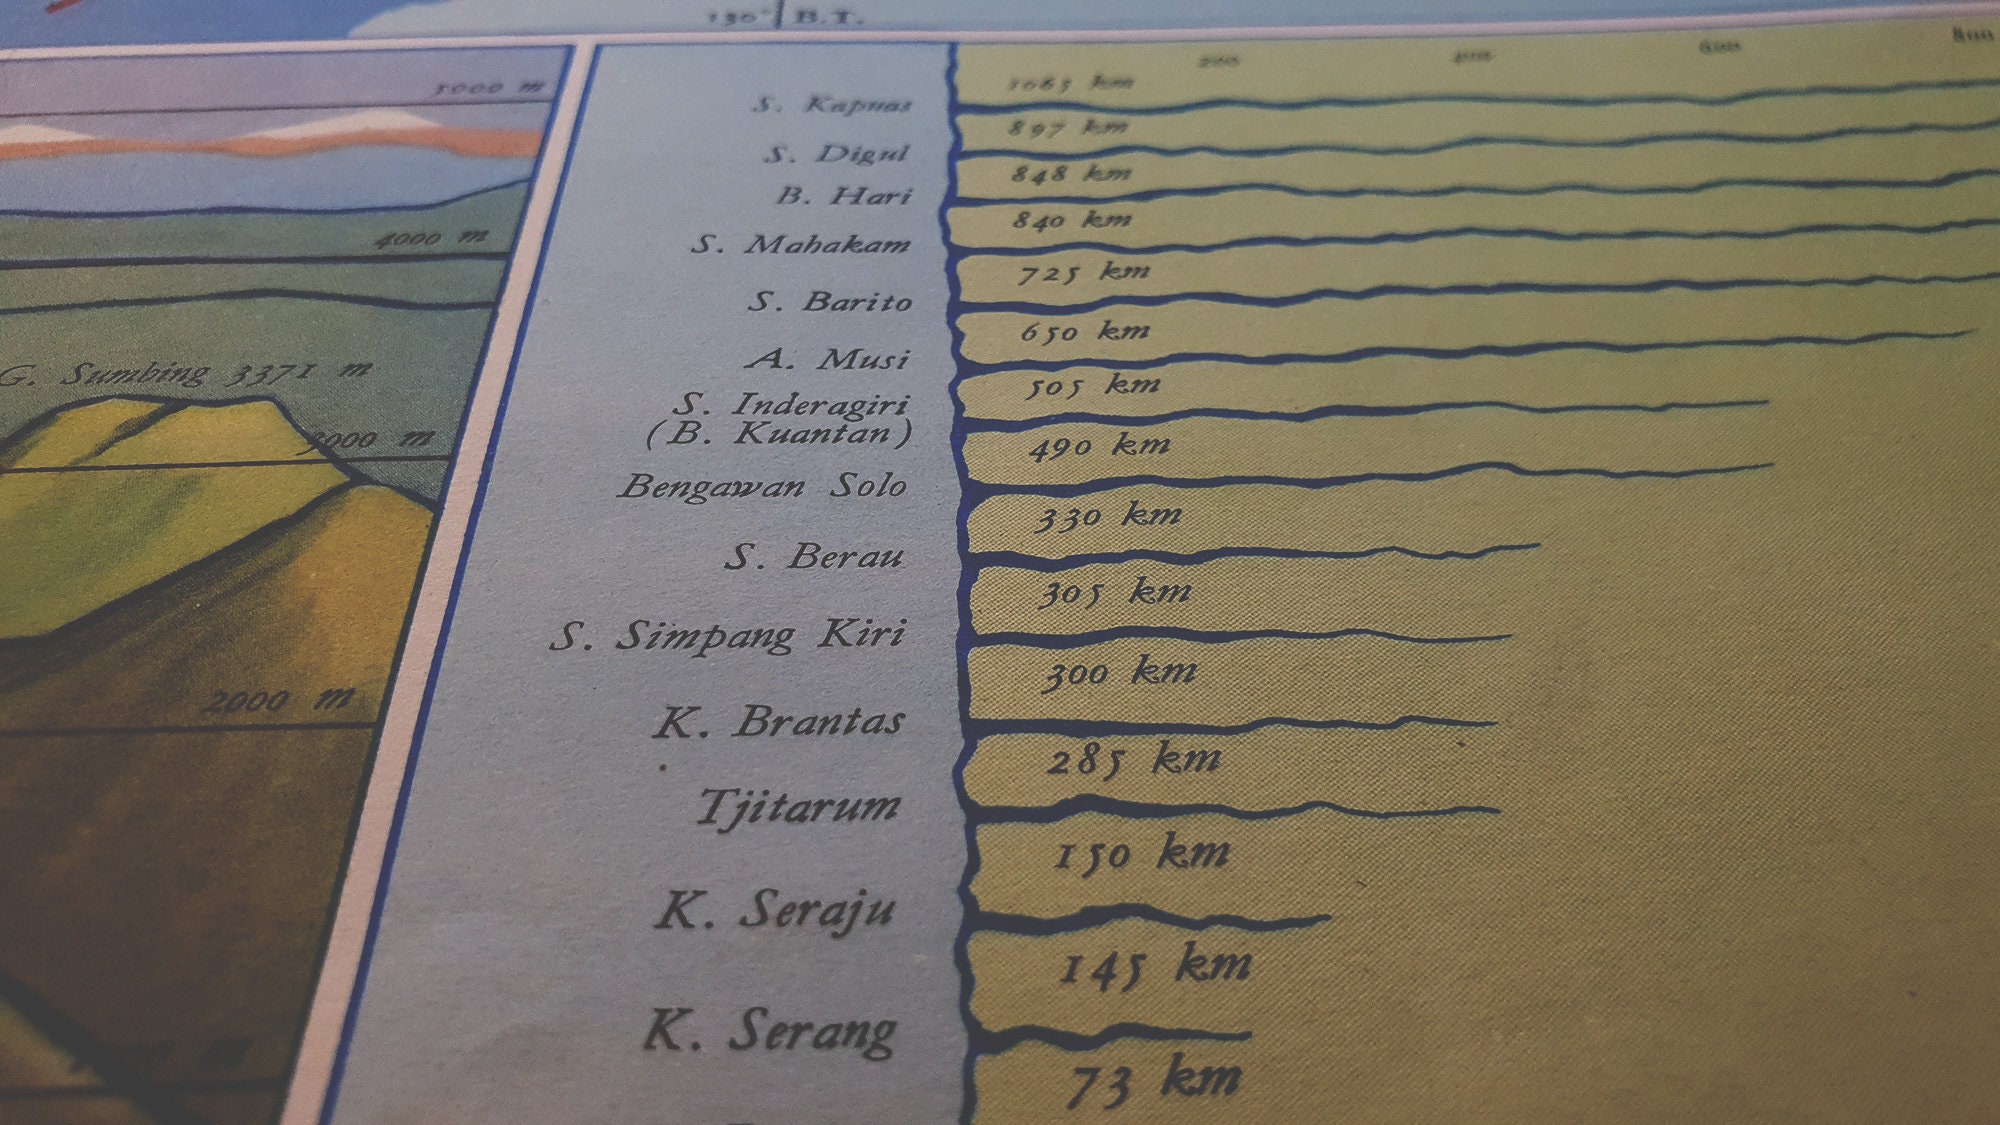 130° B.T.
5000 m
4000 m
G. Sumbing 3371 m
3000 m
2000 m
200 400 600 800
1065 km
S. Kapuas
897 km
S. Digul
848 km
B. Hari
840 km
S. Mahakam
725 km
S. Barito
650 km
A. Musi
505 km
S. Inderagiri
(B. Kuantan)
490 km
Bengawan Solo
330 km
S. Berau
305 km
S. Simpang Kiri
300 km
K. Brantas
285 km
Tjitarum
150 km
K. Seraju
145 km
K. Serang
73 km